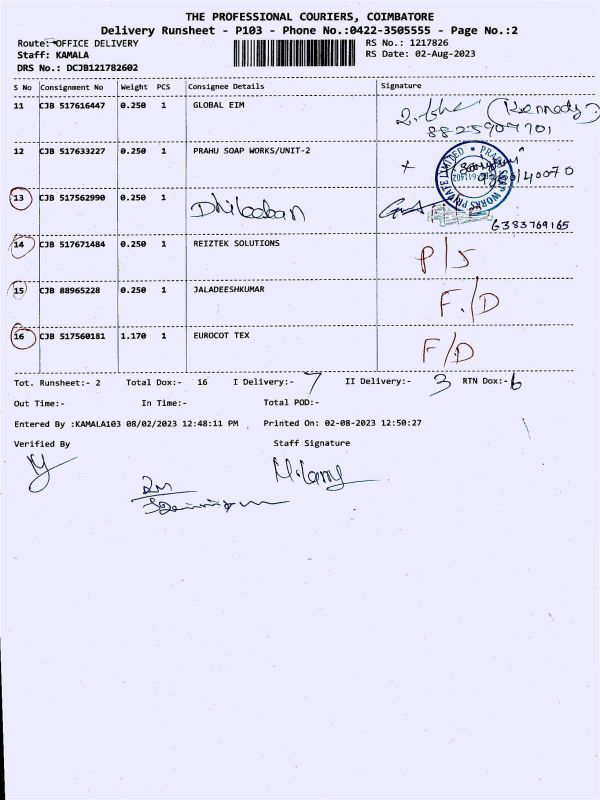 THE PROFESSIONAL COURIERS, COIMBATORE
Delivery Runsheet - P103 - Phone No.:0422-3505555 - Page No.:2
Route: OFFICE DELIVERY RS No.: 1217826
Staff: KAMALA RS Date: 02-Aug-2023
DRS No.: DCJB121782602
S No Consignment No Weight PCS Consignee Details Signature
11 CJB 517616447 0.250 1 GLOBAL EIM (Kennedy)
8825907701
12 CJB 517633227 0.250 1 PRAHU SOAP WORKS/UNIT-2
13 CJB 517562990 0.250 1 Dhileeban
6383769165
14 CJB 517671484 0.250 1 REIZTEK SOLUTIONS P/S
15 CJB 88965228 0.250 1 JALADEESHKUMAR F/D
16 CJB 517560181 1.170 1 EUROCOT TEX F/D
Tot. Runsheet:- 2 Total Dox:- 16 I Delivery:- 7 II Delivery:- 3 RTN Dox:- 6
Out Time:- In Time:- Total POD:-
Entered By :KAMALA103 08/02/2023 12:48:11 PM Printed On: 02-08-2023 12:50:27
Verified By Staff Signature